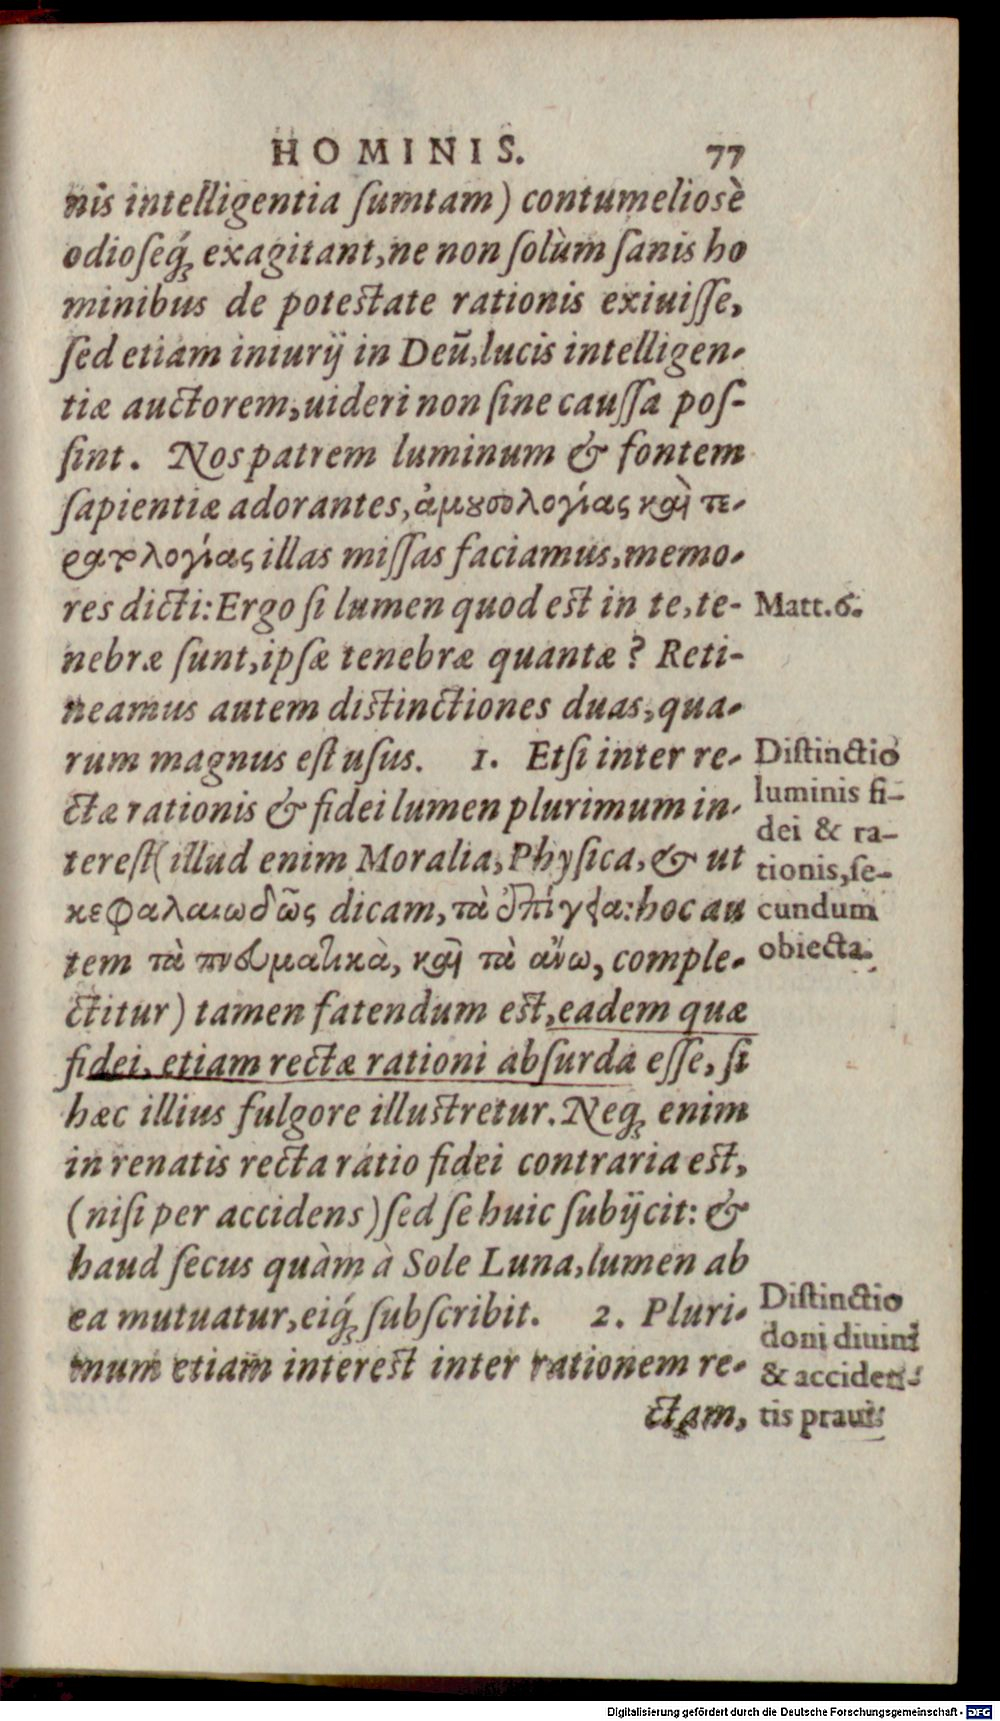 HOMINIS. 77
nis intelligentia ſumtam) contumelioſè
odioſeq́ꝫ exagitant, ne non ſolùm ſanis ho
minibus de poteſtate rationis exiuiſſe,
ſed etiam iniurij in Deũ, lucis intelligen-
tiæ auctorem, uideri non ſine cauſſa poſ-
ſint. Nos patrem luminum & fontem
ſapientiæ adorantes, ἀμουσολογίας καὶ τε-
ρατολογίας illas miſſas faciamus, memo-
res dicti: Ergo ſi lumen quod eſt in te, te-
Matt. 6.
nebræ ſunt, ipſæ tenebræ quantæ? Reti-
neamus autem diſtinctiones duas, qua-
rum magnus eſt uſus. 1. Etſi inter re-
ctæ rationis & fidei lumen plurimum in-
tereſt (illud enim Moralia, Phyſica, & ut
κεφαλαιωδῶς dicam, τὰ ἐπίγεια: hoc au
tem τὰ πνευματικὰ, καὶ τὰ ἄνω, comple-
Diſtinctio
luminis fi-
dei & ra-
tionis, ſe-
cundum
obiecta.
ctitur) tamen fatendum eſt, eadem quæ
fidei, etiam rectæ rationi abſurda eſſe, ſi
hæc illius fulgore illuſtretur. Neqꝫ enim
in renatis recta ratio fidei contraria eſt,
(niſi per accidens) ſed ſe huic ſubijcit: &
haud ſecus quàm à Sole Luna, lumen ab
ea mutuatur, eiq́ꝫ ſubſcribit. 2. Pluri-
mum etiam intereſt inter rationem re-
ctam,
Diſtinctio
doni diuini
& acciden-
tis praui.
Digitalisierung gefördert durch die Deutsche Forschungsgemeinschaft - DFG